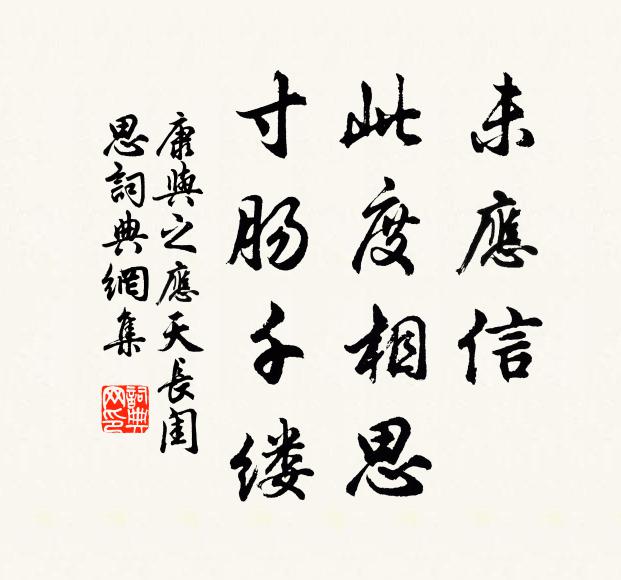 未應信
此度相思
寸肠千缕
康與之應天長闺
思詞典網集
詞典
网印